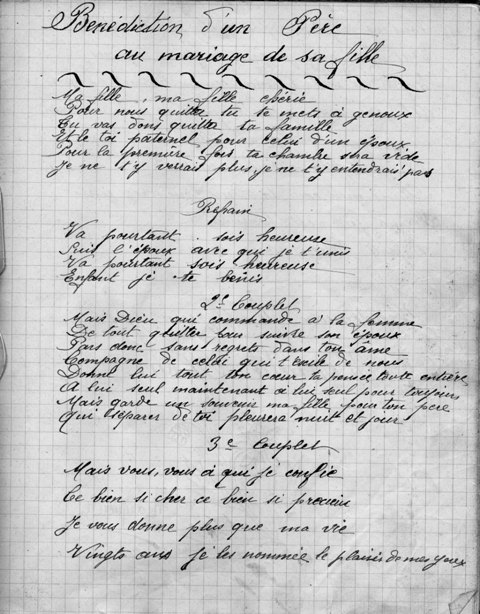 Bénédiction d'un Père
au mariage de sa fille
Ma fille, ma fille chérie
Pour nous quitta tu te mets à genoux
Tu vas donc quitta ta famille
Et le toi paternel pour celui d'un époux
Pour la première fois ta chambre sera vide
Je ne t'y verrais plus, je ne t'y entendrais pas
Refrain
Va pourtant sois heureuse
Suis l'époux avec qui je t'unis
Va pourtant sois heureuse
Enfant je te bénis
2e Couplet
Mais Dieu qui commande a la femme
De tout quitter pour suivre son époux
Pars donc sans regrets dans ton âme
Compagne de celui qui t'exile de nous
Donne lui tout ton cœur ta pensée toute entière
A lui seul maintenant à lui seul pour toujours
Mais garde un souvenir ma fille pour ton père
qui séparer de toi pleurera nuit et jour
3e Couplet
Mais vous, vous à qui je confie
Ce bien si cher ce bien si précieux
Je vous donne plus que ma vie
Vingts ans je les nommée le plaisir de mes yeux